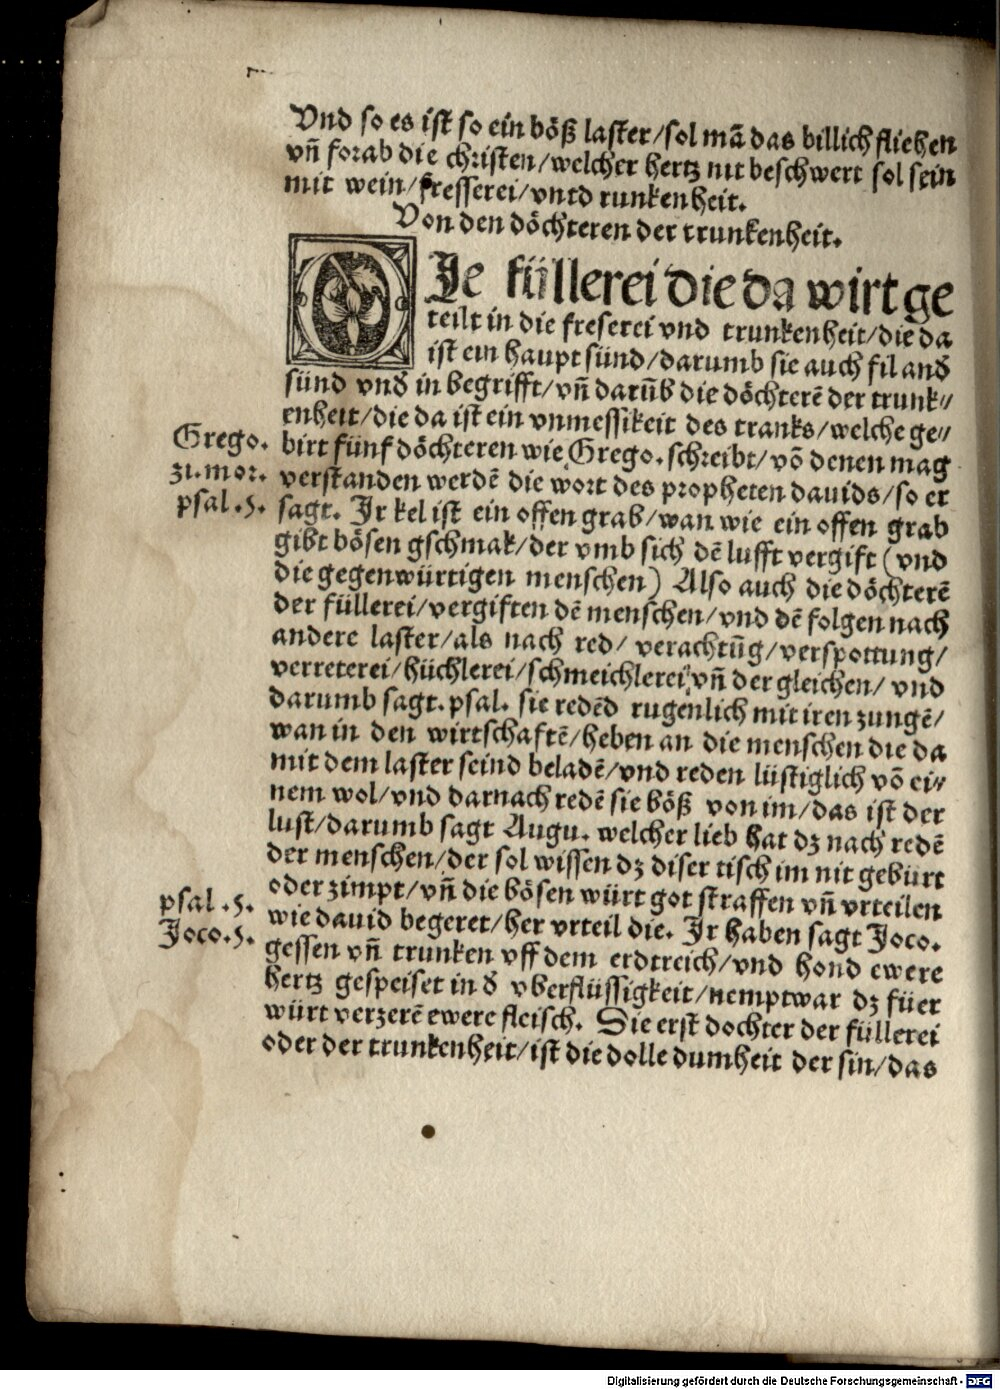 Vnd so es ist so ein böß laster/sol mā das billich fliehen
vñ forab die christen/welcher hertz nit beschwert sol sein
mit wein/fresserei/vntd runkenheit.
Von den döchteren der trunkenheit.
DIe füllerei die da wirt ge
teilt in die freserei vnd trunkenheit/die da
ist ein haupt sünd/darumb sie auch fil andẛ
sünd vndẛ in begrifft/vñ darūb die döchterē der trunk⸗
enheit/die da ist ein vnmessikeit des tranks/welche ge⸗
Grego. birt fünf döchteren wie Grego. schreibt/vō denen mag
zi.mor. verstanden werdē die wort des propheten dauids/so er
psal.5. sagt. Ir kel ist ein offen grab/wan wie ein offen grab
gibt bösen gschmak/der vmb sich dē lufft vergift (vnd
die gegenwürtigen menschen) Also auch die döchterē
der füllerei/vergiften dē menschen/vnd dē folgen nach
andere laster/als nach red/ verachtūg/verspottung/
verreterei/hüchlerei/schmeichlerei/vñ der gleichen/ vnd
darumb sagt.psal. sie redēd rugenlich mit iren zungē/
wan in den wirtschaftē/heben an die menschen die da
mit dem laster seind beladē/vnd reden lüstiglich vō ei⸗
nem wol/vnd darnach redē sie böß von im/das ist der
lust/darumb sagt Augu. welcher lieb hat dz nach redē
der menschen/der sol wissen dz diser tisch im nit gebürt
oder zimpt/vñ die bösen würt got straffen vñ vrteilen
psal.5. wie dauid begeret/her vrteil die. Ir haben sagt Joco.
Joco.5. gessen vñ trunken vff dem erdtreich/vnd hond ewere
hertz gespeiset in ẛ vberflüssigkeit/nemptwar dz füer
würt verzerē ewere fleisch. Die erst dochter der füllerei
oder der trunkenheit/ist die dolle dumheit der sin/das
Digitalisierung gefördert durch die Deutsche Forschungsgemeinschaft - DFG